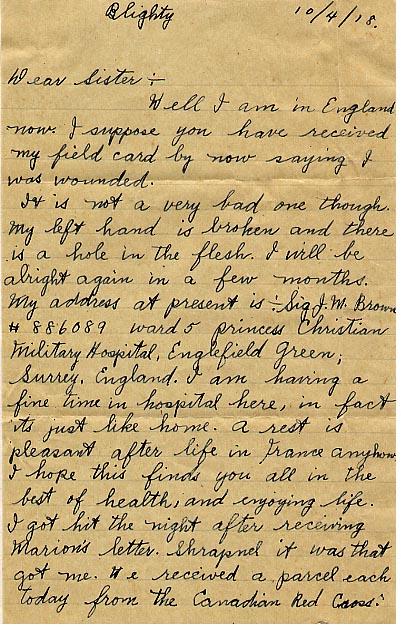 Blighty 10/4/18.
Dear Sister :-
Well I am in England
now. I suppose you have received
my field card by now saying I
was wounded.
It is not a very bad one though.
My left hand is broken and there
is a hole in the flesh. I will be
alright again in a few months.
My address at present is :- Sig J. M. Brown
# 886089 ward 5 princess Christian
Military Hospital, Englefield Green,
Surrey, England. I am having a
fine time in hospital here, in fact
its just like home. A rest is
pleasant after life in France anyhow.
I hope this finds you all in the
best of health, and enjoying life.
I got hit the night after receiving
Marion's letter. Shrapnel it was that
got me. We received a parcel each
today from the Canadian Red Cross.